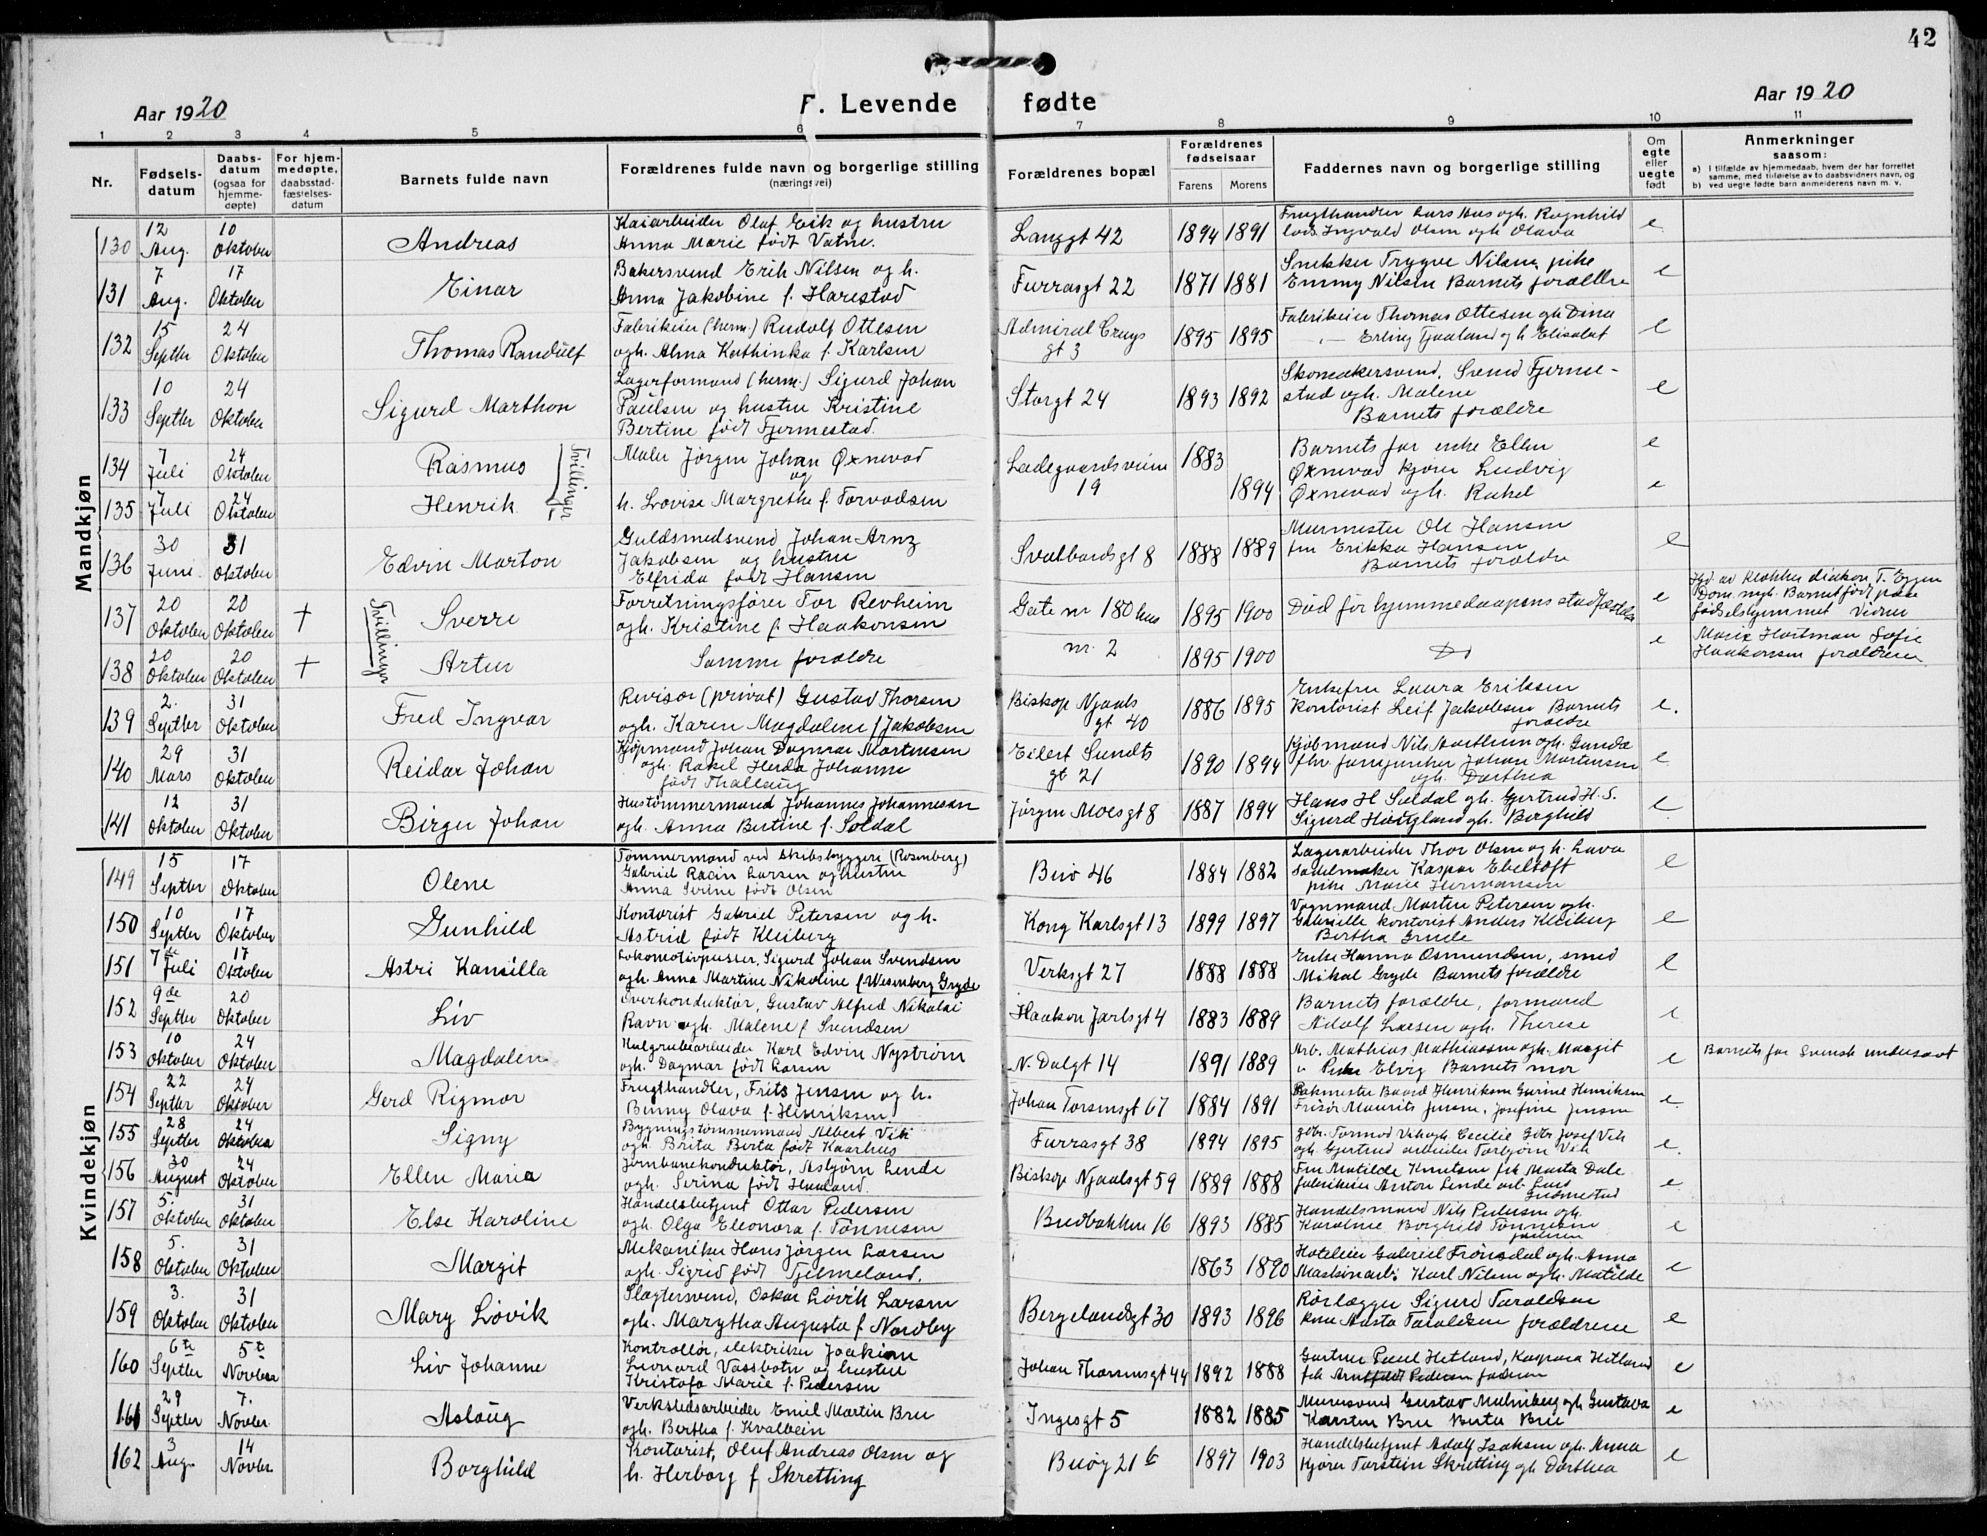 42
Aar 1920
F. Levende fødte
Aar 1920
1 2 3 4 5 6 7 8 9 10 11
Nr.
Fødsels-
datum
Daabs-
datum
(ogsaa for
hjemme-
døpte)
For hjem-
medøpte,
daabsstad-
fæstelses-
datum
Barnets fulde navn
Forældrenes fulde navn og borgerlige stilling
(næringsvei)
Forældrenes bopæl
Forældrenes
fødselsaar
Farens Morens
Faddernes navn og borgerlige stilling
Om
egte
eller
uegte
født
Anmerkninger
saasom:
a) I tilfælde av hjemmedaab, hvem der har forrettet
samme, med tilføielse av to daabsvidners navn, og
b) ved uegte fødte barn anmelderens navn m. v.
Mandkjøn
130 12 Aug. 10 Oktober Andreas
Kaiarbeider Olaf Eik og hustru
Anna Marie født Vatne.
Langgt 42 1894 1891
Frugthandler Lars Aas ogh. Ragnhild
lods. Ingvald Olsen ogh Olava
e
131 7 Aug. 17 Oktober Einar
Bakersvend Erik Nilsen og h.
Anna Jakobine f. Harestad
Furrasgt 22 1871 1881
Snekker Trygve Nilsen, pike
Emmy Nilsen Barnets forældre
e
132 15 Septbr 24 Oktober Thomas Randulf
Fabrikeier (herm.) Rudolf Ottesen
ogh. Alma Kathinka f. Karlsen
Admiral Cruys
gt 3 1895 1895
Fabrikeier Thomas Ottesen ogh Dina
Erling Tjaaland og h Elisabet
e
133 10 Septbr 24 Oktober Sigurd Marthon
Lagerformand (herm.) Sigurd Johan
Paulsen og hustru Kristine
Bertine født Fjermestad.
Storgt 24 1893 1892
Skomakersvend. Svend Fjerme-
stad ogh. Malene
Barnets forældre
e
134 7 Juli 24 Oktober Rasmus
135 7 Juli 24 Oktober Henrik
Tvillinger
Maler Jørgen Johan Øxnevad
og
h. Lovise Margrethe f. Torvadsen
Ladegaardsveien
19 1883 1894
Barnets far enke Ellen
Øxnevad kjører Ludvig
Øxnevad ogh. Rakel
e
e
136 30 Juni 31 Oktober Edvin Marton
Guldsmedsvend Johan Arnz
Jakobsen og hustru
Elfrida født Hansen
Svalbardsgt 8 1888 1889
Murmester Ole Hansen
fru Erikka Hansen
Barnets forældre
e
137 20 Oktober 20 Oktober + Sverre
Tvillinger
Forretningsfører Tor Revheim
ogh. Kristine f. Haakonsen
Gate nr 180 hus
nr. 2 1895 1900
Død før hjemmedaapens stadfæstelse
e
Hjd. av Klokker diakon T. Eggen
Dom. mgh. Barnet født paa
fødselshjemmet Vidner
Marie Hartman Sofie
Haakonsen forældrene
138 20 Oktober 20 Oktober + Artur
Samme forældre
1895 1900
Do
e
139 2. Septbr 31 Oktober Fred Ingvar
Revisor (privat) Gustav Thorsen
ogh. Karen Magdalene f Jakobsen
Biskop Njaals
gt 40 1886 1895
Enkefru Laura Eriksen
Kontorist Leif Jakobsen Barnets
forældre
e.
140 29 Mars 31 Oktober Reidar Johan
Kjøpmand Johan Dagmar Martensen
ogh. Rakel Herda Johanne
født Thallaug
Eilert Sundts
gt 21 1890 1894
Kjøbmand Nils Aartun ogh. Gunda
fhv. Johan Mortensen
ogh. Dorthea
e
141 12 Oktober 31 Oktober Birger Johan
Hustømmermand Johannes Johannesen
ogh. Anna Bertine f. Søldal
Jørgen Moesgt 8 1887 1894
Hans H Søldal ogh. Gjertrud H. S.
Sigurd ogh. Borghild
e
Kvindekjøn
149 15 Septbr 17 Oktober Olene
Tømmermand ved skibsbyggeri (Rosenberg)
Gabriel Racin Larsen og hustru
Anna Serine født Olsen
Buø 46 1884 1882
Lagerarbeider Thor Olsen og h. Lava
Sadelmaker Kaspar Ebeltoft
pike Marie Hermansen
e
150 10 Septbr 17 Oktober Gunhild
Kontorist Gabriel Petersen og h.
Astrid født Kleiberg
Kong Karlsgt 13 1899 1897
Vognmand Martin Petersen ogh.
Gabrielle kontorist Anders Kleiberg
Bertha Grude
e
151 7de Juli 17 Oktober Astri Kamilla
Lokomotivpusser, Sigurd Johan Svendsen
ogh. Anna Martine Nikoline f. Wesenberg Gryde
Verksgt 27 1888 1888
Enke Hanna Osmundsen, smed
Mikal Gryde Barnets forældre
e
152 9de Septbr 20 Oktober Liv
Overkonduktør, Gustav Alfred Nikolai
Ravn ogh. Malene f Svendsen
Haakon Jarlsgt 4 1883 1889
Barnets forældre, formand
Adolf Larsen ogh. Therese
e
153 10 Oktober 24 Oktober Magdalen
Kulgrubearbeider Karl Edvin Nystrøm
ogh. Dagmar født Larsen
N. Dalgt 14 1891 1889
Arb. Mathias Mathiassen ogh. Margit
Elvig Barnets mor
e
Barnets far Svensk undersaat
154 22 Septbr 24 Oktober Gerd Rigmor
Frugthandler, Frits Jensen og h.
Binny Olava f. Hinriksen
Johan Torsensgt 67 1884 1891
Bakmester Baard Henriksen Gurine Henriksen
Frisør Maurits Jensen, Josefine Jensen
e
155 28 Septbr 24 Oktober Signy
Bygningstømmermand Albert Vik
ogh. Brita Berta født Kaarhus
Furrasgt 38 1894 1895
gbr. Tormod Vik ogh. Cecilie Gbr Josef Vik
ogh Gjertrud arbeider Torbjørn Vik
e.
156 30 August 24 Oktober Ellen Maria
Jernbanekonduktør, Asbjørn Lende
ogh. Serina født Haaland.
Biskop Njaalsgt 59 1889 1888
Fru Matilde Knutsen frk Marta Dale
fabrikeier Anton Lende arb Lars
e
157 5. Oktober 31 Oktober Else Karoline
Handelsbetjent Ottar Pedersen
ogh. Olga Eleonora f. Tønnesen
Bredbakken 16 1893 1885
Handelsmand Nils Pedersen ogh.
Karoline Borghild Tønnesen
faderen
e
158 5. Oktober 31 Oktober Margit
Mekaniker Hans Jørgen Larsen
ogh. Sigrid født Tjelmeland.
1863 1890
Hoteleier Gabriel Frønsdal ogh. Anna
Maskinarb. Karl Nilsen ogh. Matilde
e
159 3. Oktober 31 Oktober Mary Løvik
Slagtersvend, Oskar Løvik Larsen
ogh. Marytha Augusta f Nordby
Bergelandsgt 30 1893 1896
Rørlægger Sigurd Taraldsen
Aasta Taraldsen forældrene
e
160 6te Septbr 5te Novber Liv Johanne
Kontrollør, elektriker Joakim
Leonard Vassbotn og hustru
Kristofa Marie f. Pedersen
Johan Thorsensgt 44 1892 1888
Gartner Paul Hetland, Kaspara Hetland
frk Pedersen faderen
e
161 29 Septbr 7. Novber. Aslaug
Verkstedsarbeider Emil Martin Bru
ogh. Bertha f. Kvalbein
Ingesgt 5 1882 1885
Murersvend Gustav Malmberg ogh Gustava
Karsten Bru Berta Bru
e
162 3 Aug. 14 Novbr. Borghild
Kontorist, Oluf Andreas Olsen og
h. Herborg f Skretting
Buøy 21b 1897 1903
Handelsbetjent Adolf Isaksen ogh. Anna
Kjører Torstein Skretting ogh Dorthea
e